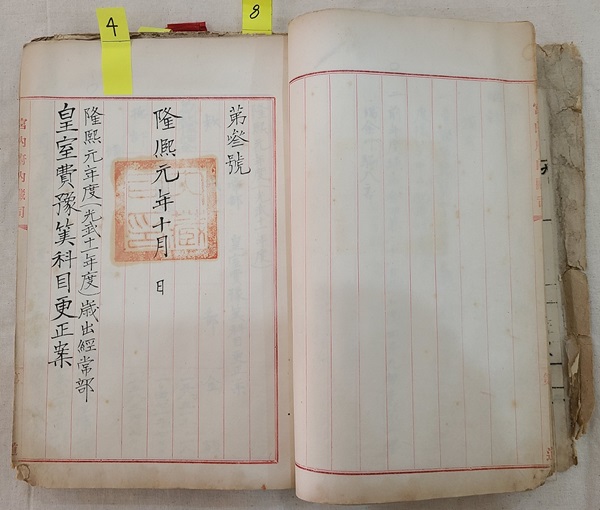 4
8
第叄號
隆熙元年十月 日
隆熙元年度(光武十一年度)歲出經常部
皇室費豫筭科目更正案
宮內府內藏司